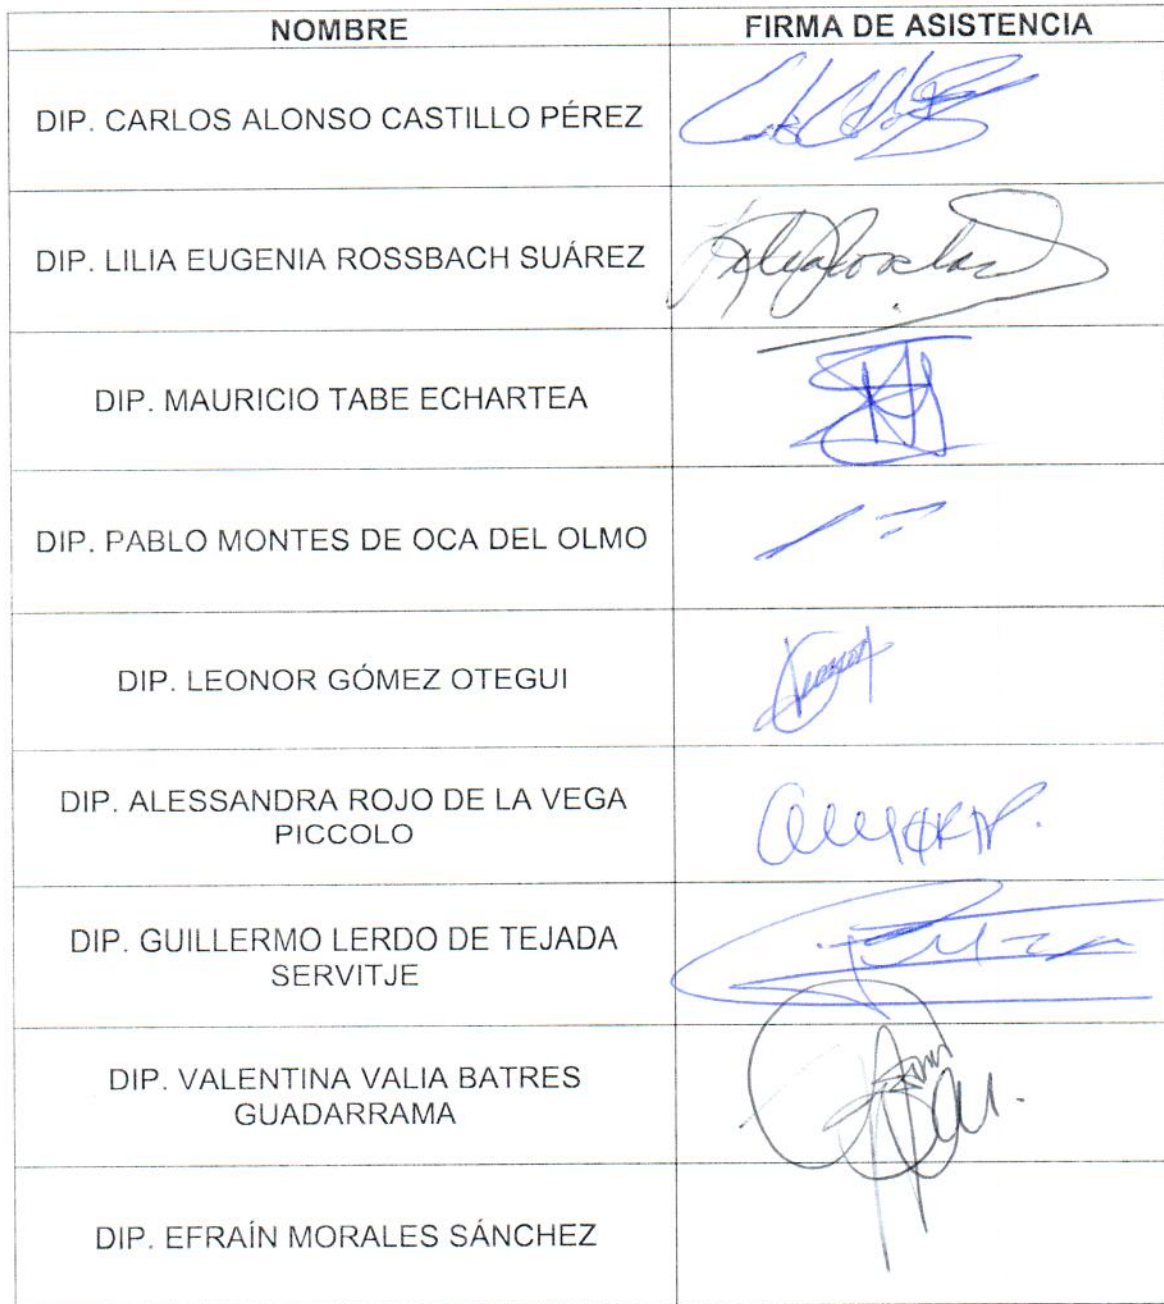 NOMBRE FIRMA DE ASISTENCIA
DIP. CARLOS ALONSO CASTILLO PÉREZ
DIP. LILIA EUGENIA ROSSBACH SUÁREZ
DIP. MAURICIO TABE ECHARTEA
DIP. PABLO MONTES DE OCA DEL OLMO
DIP. LEONOR GÓMEZ OTEGUI
DIP. ALESSANDRA ROJO DE LA VEGA
PICCOLO
DIP. GUILLERMO LERDO DE TEJADA
SERVITJE
DIP. VALENTINA VALIA BATRES
GUADARRAMA
DIP. EFRAÍN MORALES SÁNCHEZ